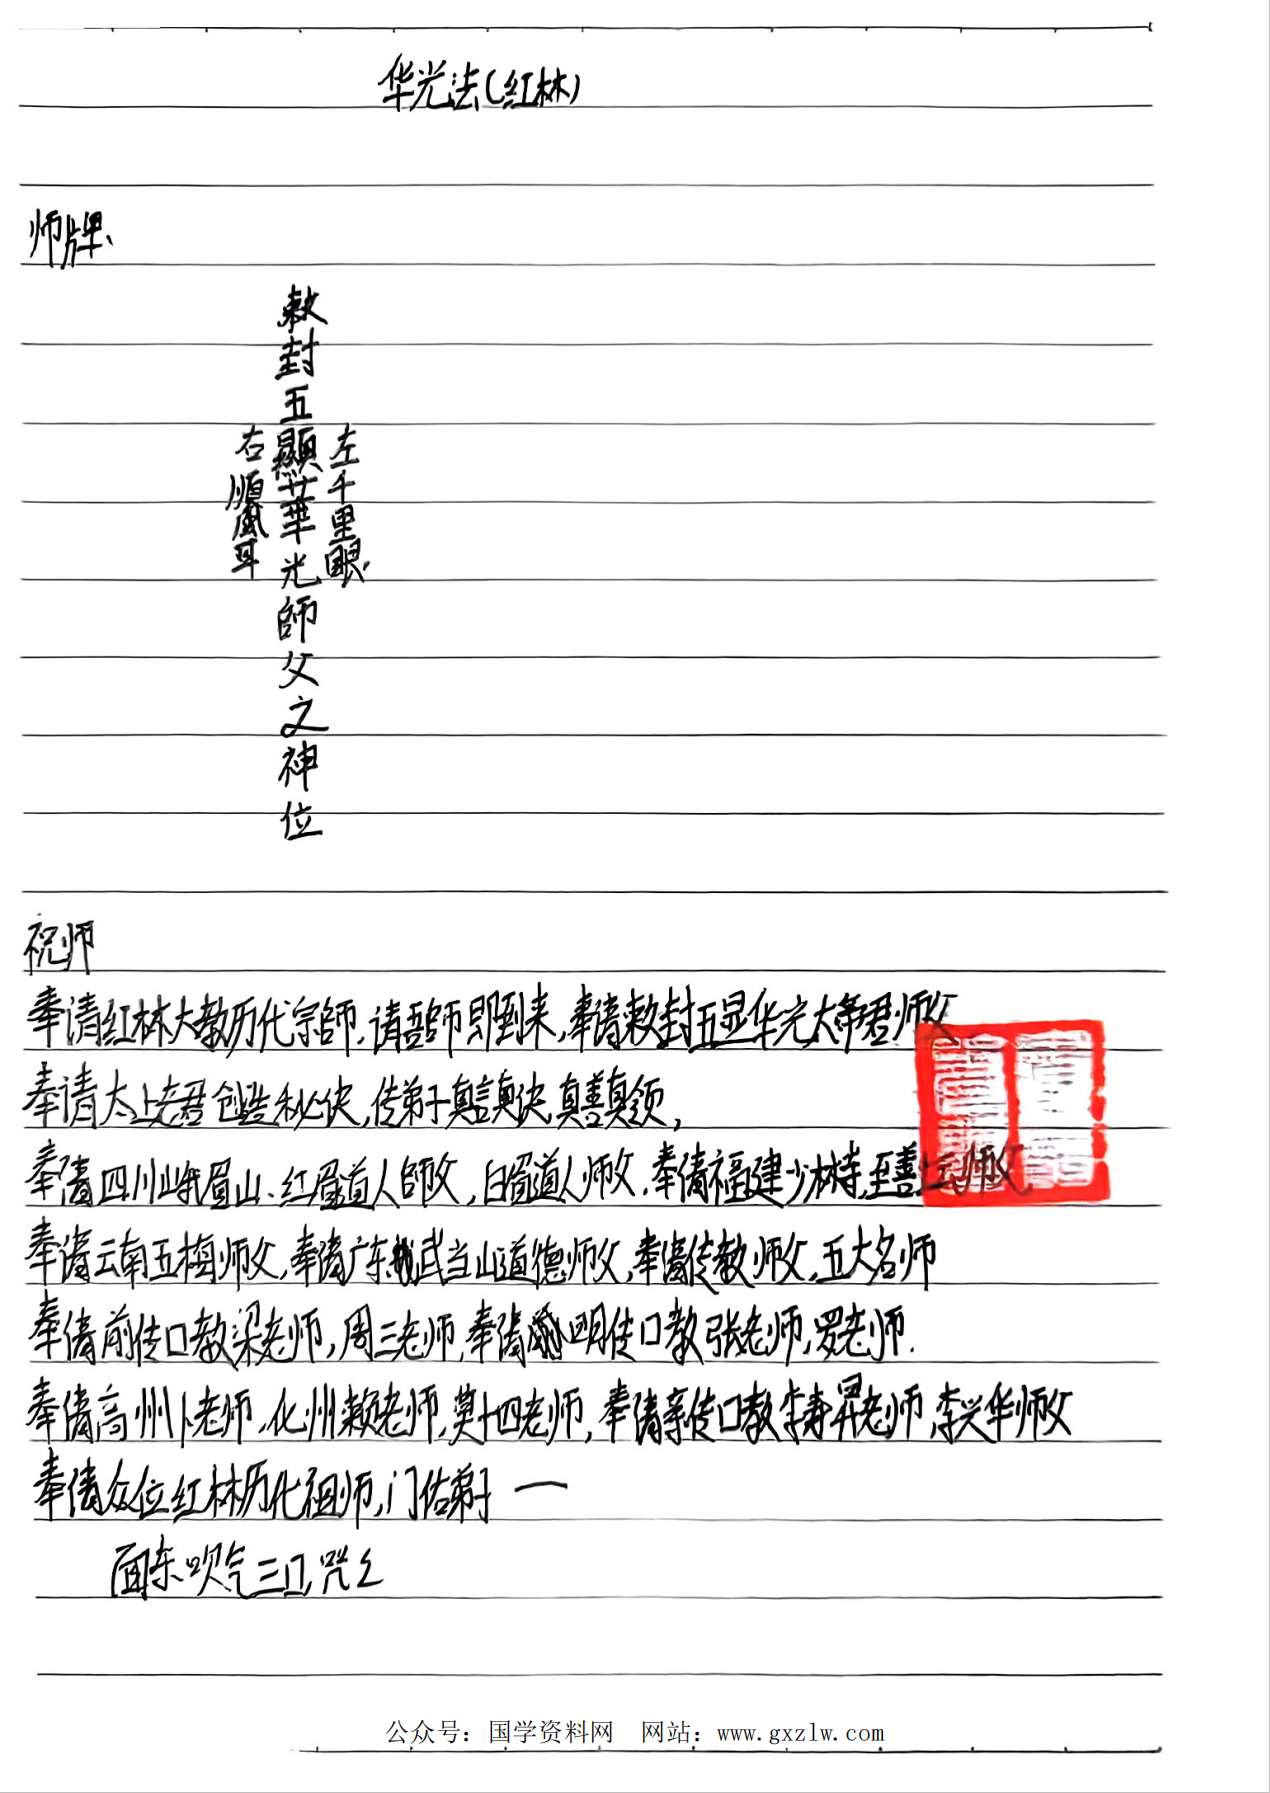 华光法(红林)
师牌、
敕封五顯華光師父之神位
左千里眼
右順風耳
祝师
奉请红林大教历代宗師,请吾師即到来,奉请敕封五显华光大帝君师父
奉请太上老君创造秘诀,传弟子真言真诀,真善真领,
奉请四川峨眉山、红眉道人師父,白眉道人师父,奉请福建少林寺,至善师父
奉请云南五梅师父,奉请广东武当山道德师父,奉请传教师父,五大名师
奉请前传口教梁老师,周三老师,奉请明传口教张老师,罗老师.
奉请高州卜老师,化州赖老师,莫十四老师,奉请亲传口教李寿昇老师,李兴华师父
奉请众位红林历代祖师,门佑弟子 一
面东吹气三口,咒
公众号:国学资料网 网站:www.gxzlw.com